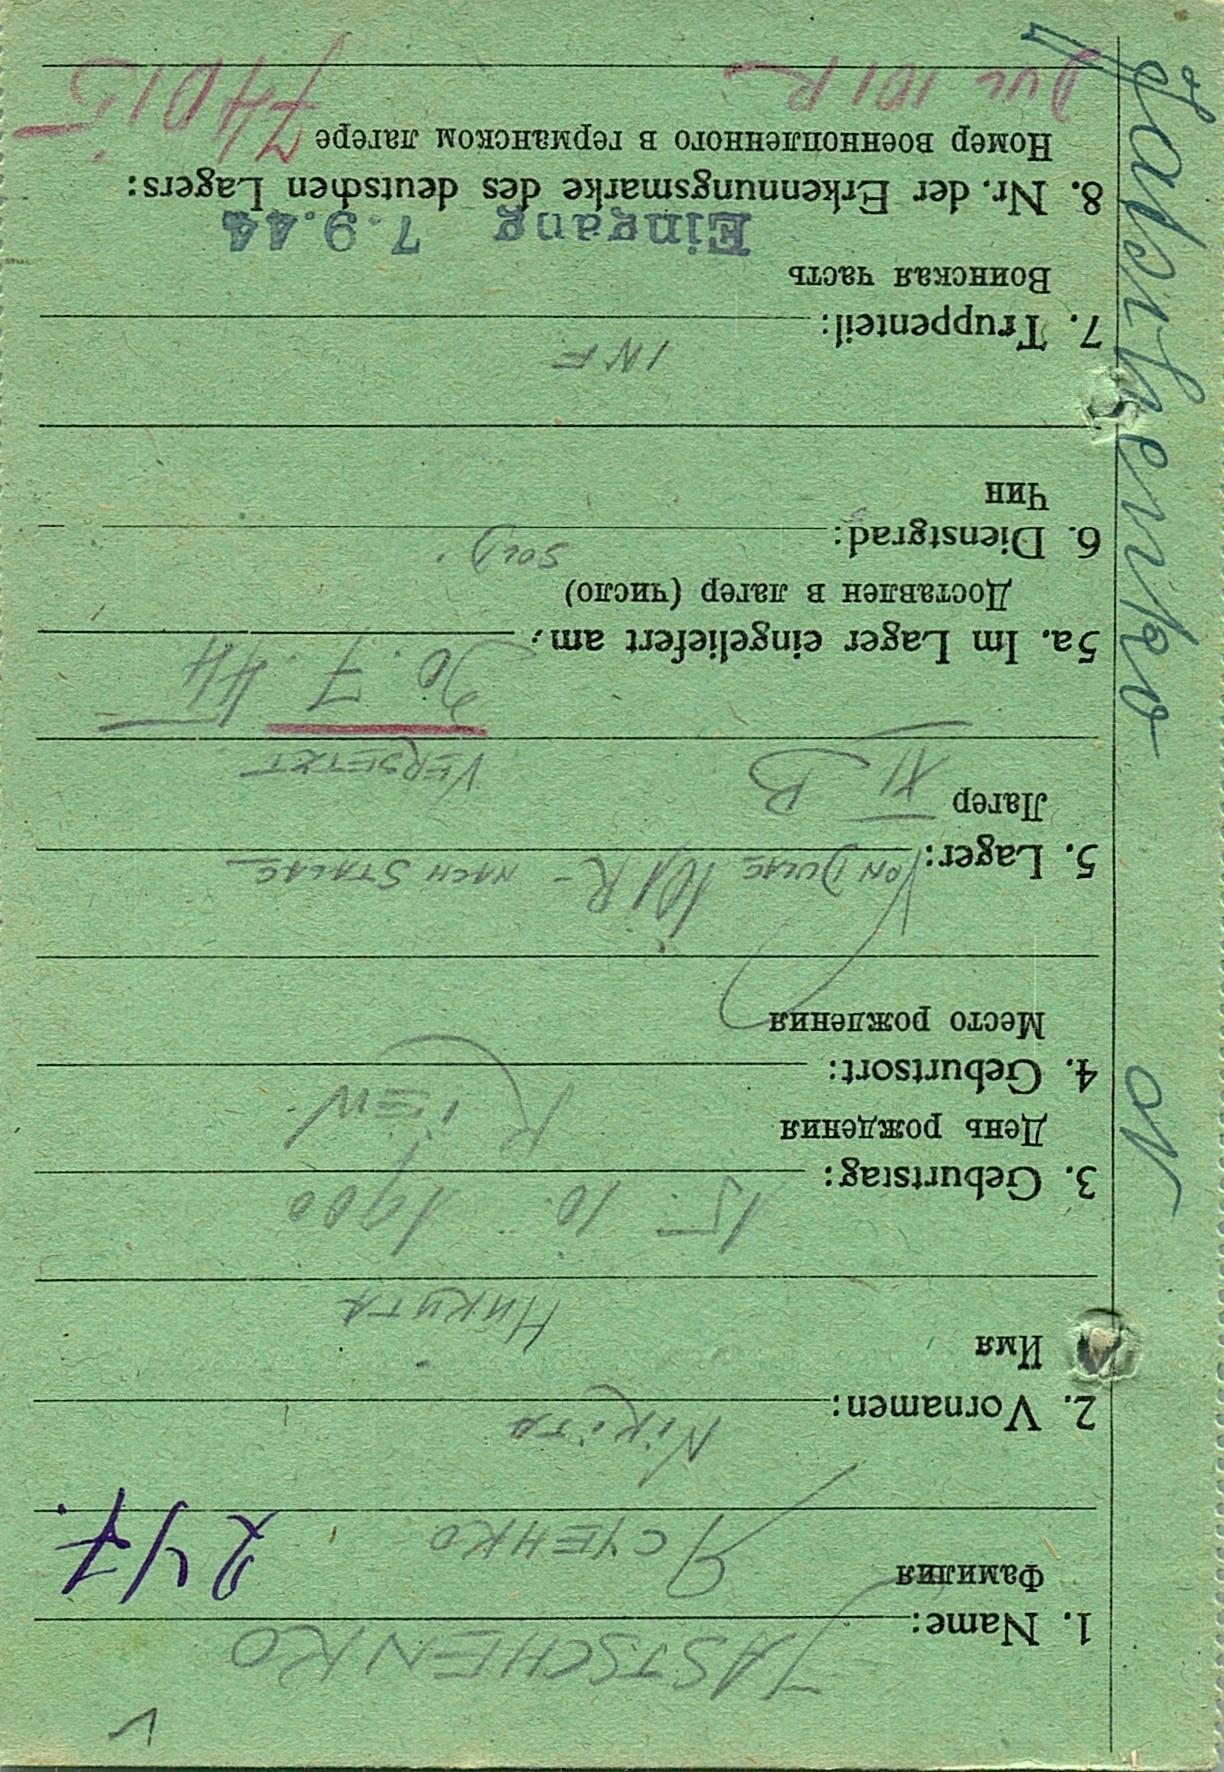 JASTSCHENKO
1. Name:
Фамилия
ЯСЧЕНКО
247.
2. Vornamen: NiKiTA
Имя
НИКИТА
3. Geburtstag: 15. 10. 1900
День рождения
4. Geburtsort: KiEW.
Место рождения
5. Lager: VON DULAG 101 R - NACH STALAG
Лагер
XI B VERSETZT
5a. Im Lager eingeliefert am: 30. 7. 44
Доставлен в лагер (число)
6. Dienstgrad: SOLD.
Чин
7. Truppenteil: INF
Воинская часть
Eingang 7.9.44
8. Nr. der Erkennungsmarke des deutschen Lagers:
Номер военнопленного в германском лагере
DUL 101 R 74015
N